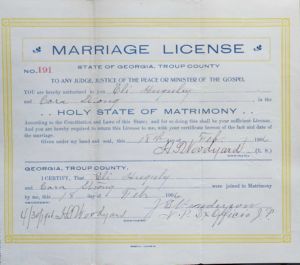 MARRIAGE LICENSE
STATE OF GEORGIA, TROUP COUNTY
No. 191
TO ANY JUDGE, JUSTICE OF THE PEACE OR MINISTER OF THE GOSPEL
YOU are hereby authorized to join Eli Huguly
and Cora Strong in the
HOLY STATE OF MATRIMONY
According to the Constitution and Laws of this State; and for so doing this shall be your sufficient License.
And you are hereby required to return this License to me, with your certificate hereon of the fact and date
of the marriage.
Given under my hand and seal, this 18 Feb 190
H T Woodyard (L. S.)
GEORGIA, TROUP COUNTY.
I CERTIFY, That Eli Huguly
and Cora Strong were joined in Matrimony
by me, this 18 day of Feb 190
H T Woodyard
N. P. Ex Officio J. P.